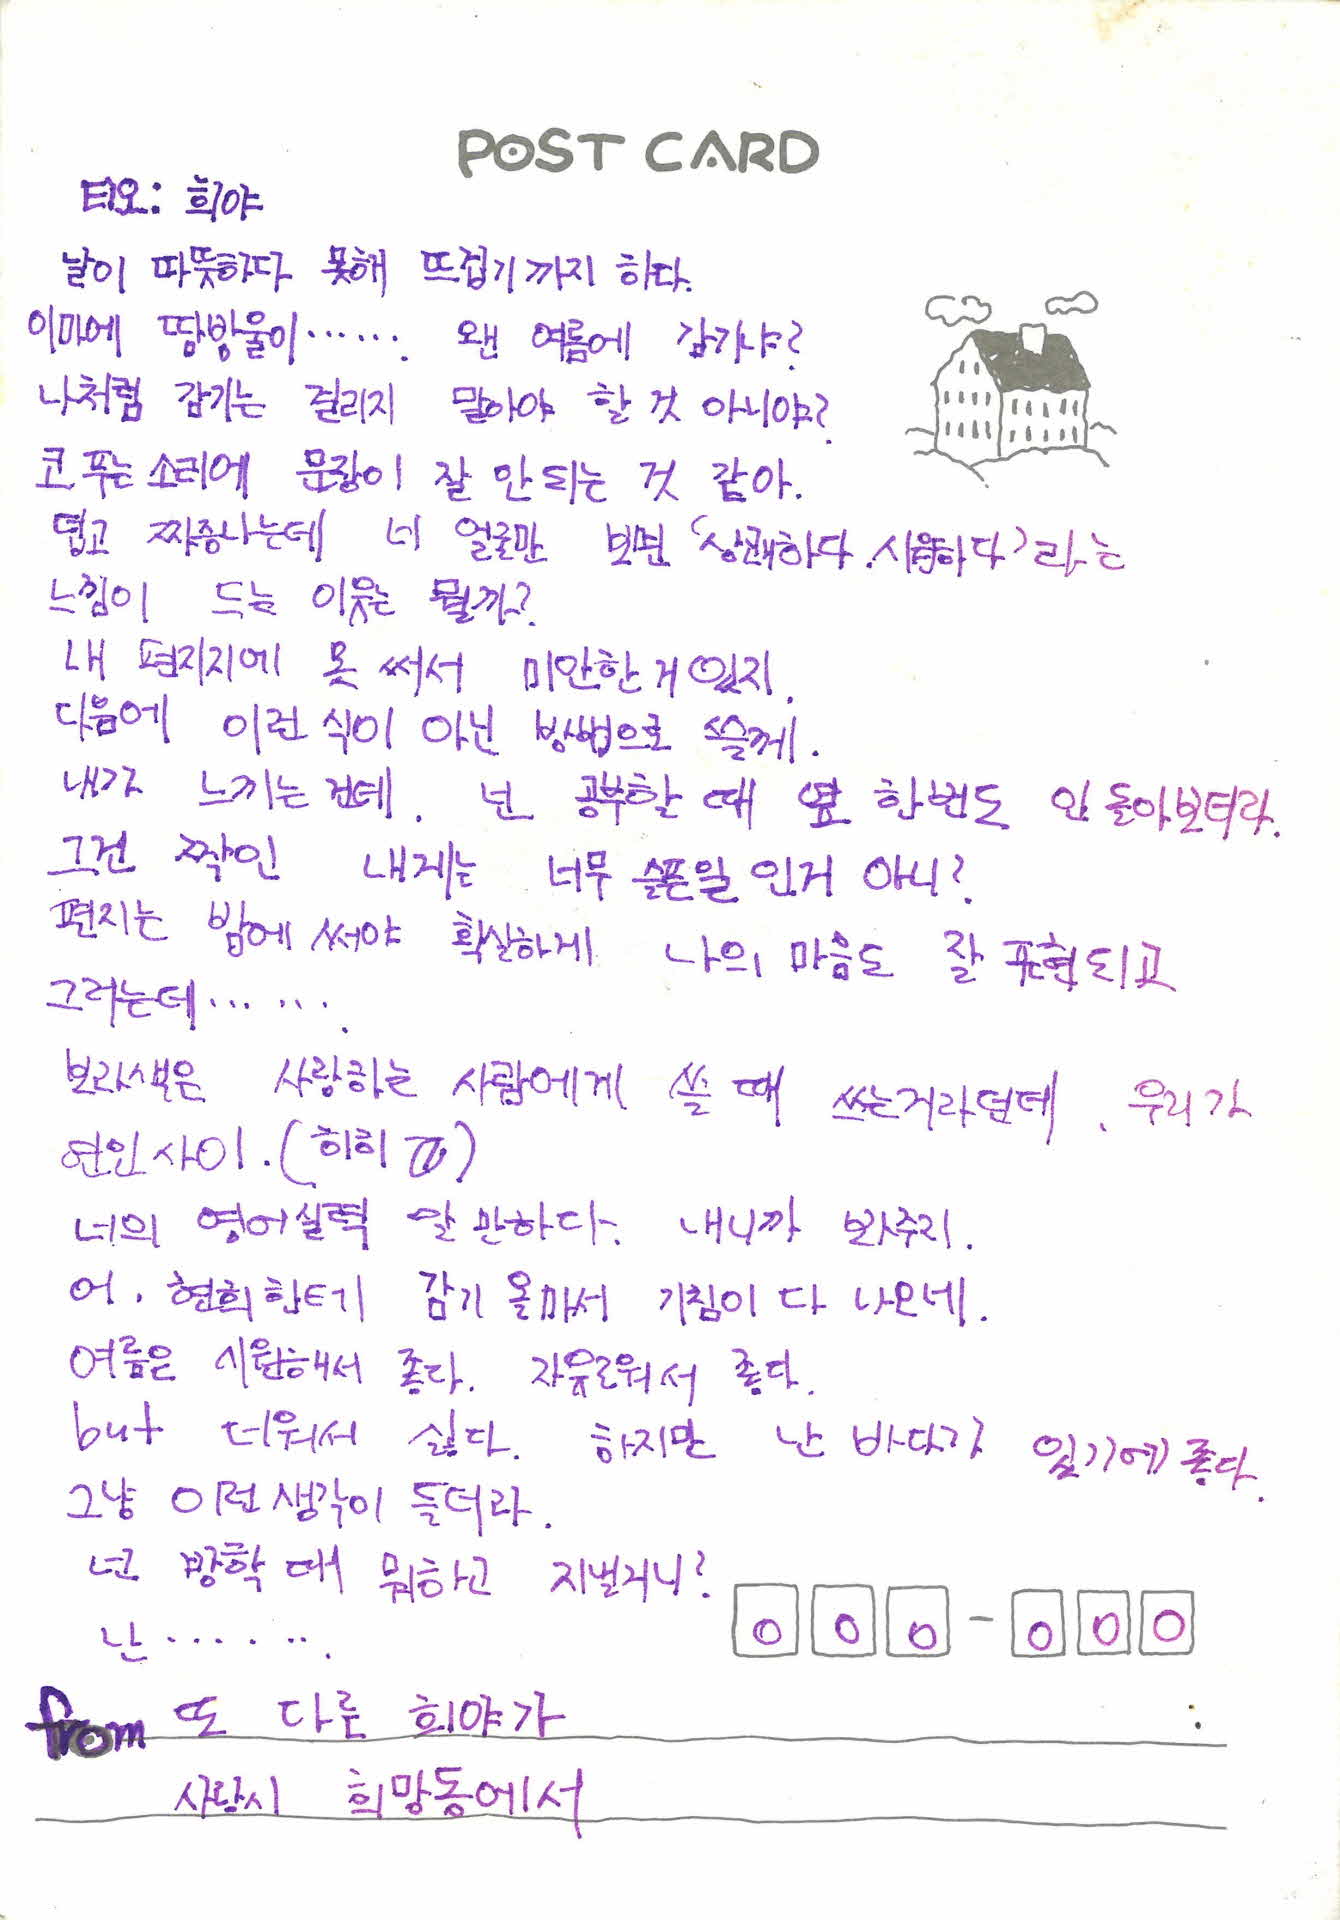 POST CARD
티오: 희야
날이 따뜻하다 못해 뜨겁기까지 하다.
이마에 땀방울이……. 왠 여름에 감기냐?
나처럼 감기는 걸리지 말아야 할 것 아니야?
코 푸는 소리에 문장이 잘 안되는 것 같아.
덥고 짜증나는데 네 얼굴만 보면 '상쾌하다. 시원하다'라는
느낌이 드는 이웃는 뭘까?
내 편지지에 못 써서 미안한 거 있지.
다음에 이런 식이 아닌 방법으로 쓸께.
내가 느끼는 건데. 넌 공부할 때 옆 한번도 안 돌아보더라.
그건 짝인 내게는 너무 슬픈일 인거 아니?
편지는 밤에 써야 확실하게 나의 마음도 잘 표현되고
그러는데…….
보라색은 사랑하는 사람에게 쓸 때 쓰는거라던데. 우리가
연인사이. (히히)
너의 영어실력 알만하다. 내니까 봐주지.
어. 현희한테 감기 올마서 기침이 다 나오네.
여름은 시원해서 좋다. 자유로워서 좋다.
but 더워서 싫다. 하지만 난 바다가 있기에 좋다.
그냥 이런 생각이 들더라.
넌 방학 때 뭐하고 지낼거니?
난…….
000-000
from 또 다른 희야가
사랑시 희망동에서